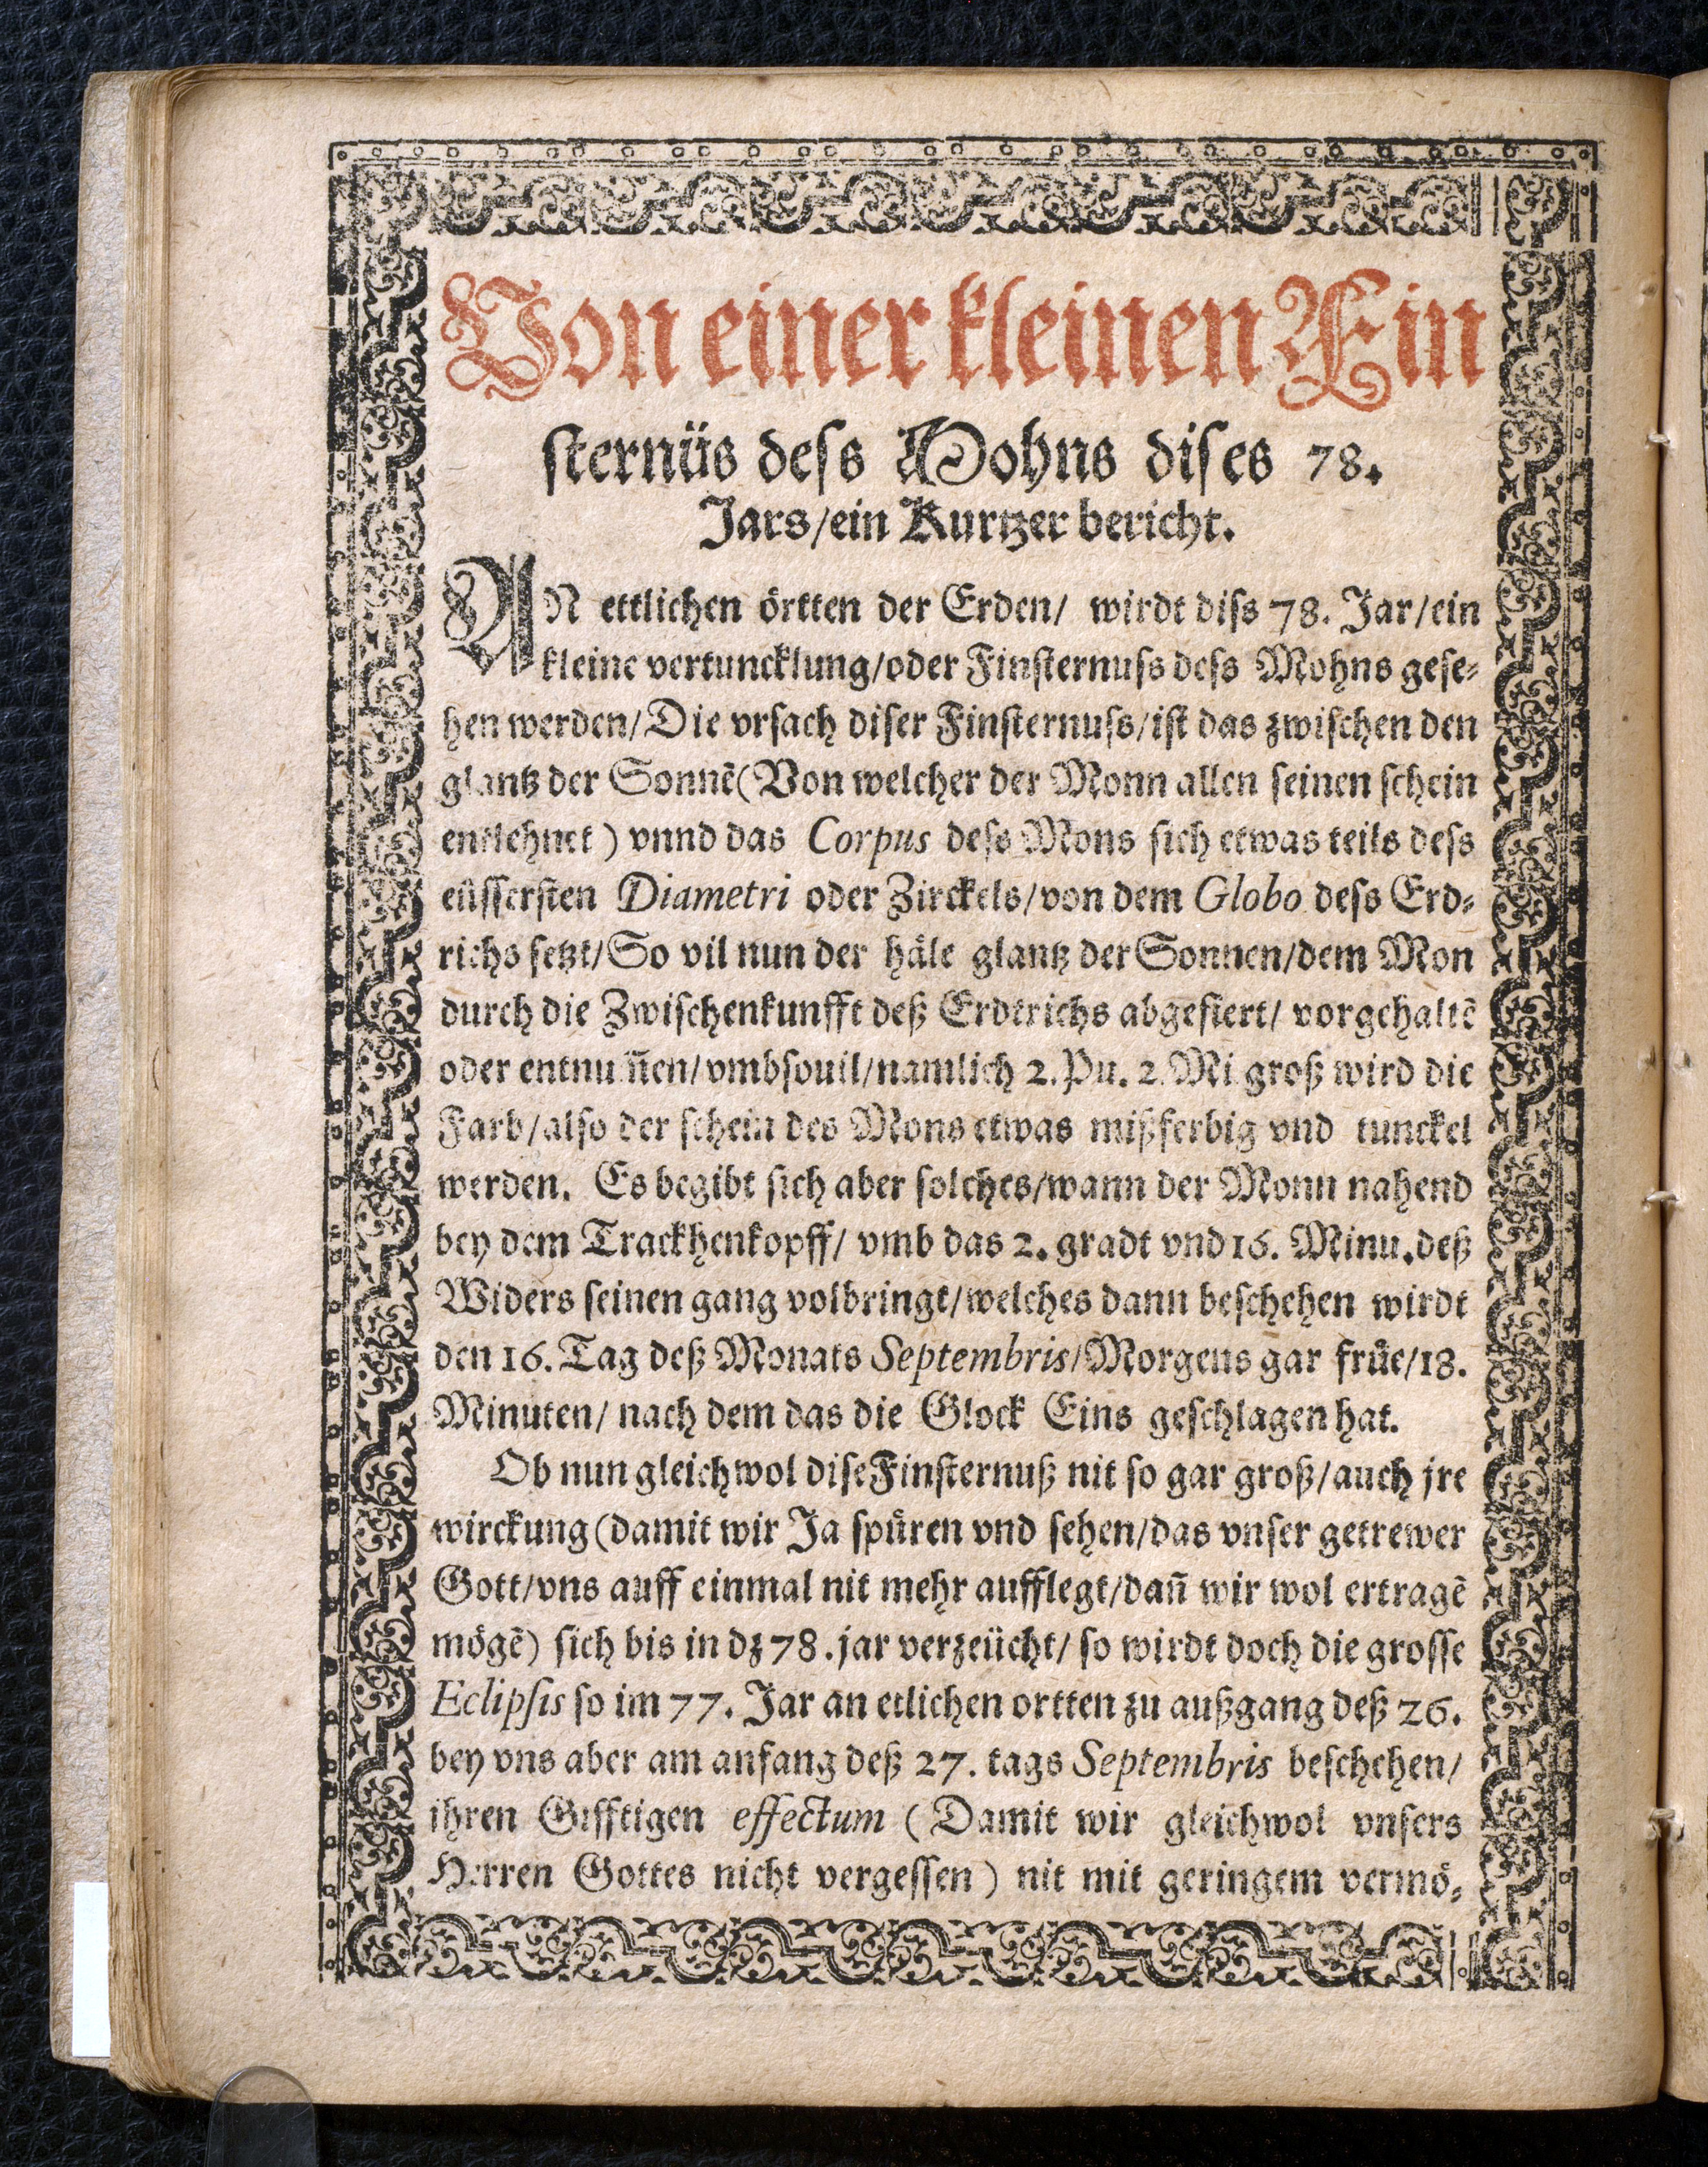 Von einer kleinen Fin
sternüs dess Mohns dises 78.
Jars/ein Kurtzer bericht.
AN ettlichen örtten der Erden/ wirdt diss 78. Jar/ein
kleine vertuncklung/oder Finsternuss dess Mohns gese⸗
hen werden/Die vrsach diser Finsternuss/ist das zwischen den
glantz der Sonnē(Von welcher der Monn allen seinen schein
entlehnet) vnnd das Corpus dess Mons sich etwas teils dess
eüssersten Diametri oder Zirckels/von dem Globo dess Erd⸗
richs setzt/So vil nun der häle glantz der Sonnen/dem Mon
durch die Zwischenkunfft deß Erdtrichs abgefiert/ vorgehaltē
oder entnum̄en/vmbsouil/namlich 2. Pu. 2. Mi groß wird die
Farb/also der schein des Mons etwas mißferbig vnd tunckel
werden. Es begibt sich aber solches/wann der Monn nahend
bey dem Trackhenkopff/ vmb das 2. gradt vnd 16. Minu. deß
Widers seinen gang volbringt/welches dann beschehen wirdt
den 16. Tag deß Monats Septembris/Morgens gar früe/18.
Minuten/ nach dem das die Glock Eins geschlagen hat.
Ob nun gleichwol dise Finsternuß nit so gar groß/auch jre
wirckung(damit wir Ja spüren vnd sehen/das vnser getrewer
Gott/vns auff einmal nit mehr aufflegt/dan̄ wir wol ertragē
mögē) sich bis in dz 78. jar verzeücht/ so wirdt doch die grosse
Eclipsis so im 77. Jar an etlichen ortten zu außgang deß 26.
bey vns aber am anfang deß 27. tags Septembris beschehen/
ihren Gifftigen effectum (Damit wir gleichwol vnsers
Herren Gottes nicht vergessen) nit mit geringem vermö⸗